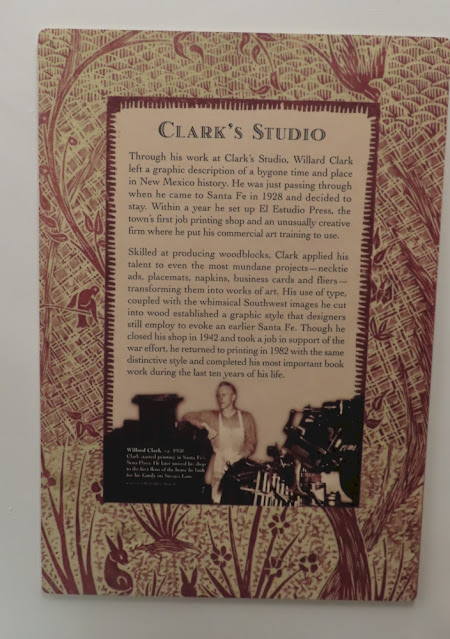 CLARK'S STUDIO
Through his work at Clark's Studio, Willard Clark
left a graphic description of a bygone time and place
in New Mexico history. He was just passing through
when he came to Santa Fe in 1928 and decided to
stay. Within a year he set up El Estudio Press, the
town's first job printing shop and an unusually creative
firm where he put his commercial art training to use.
Skilled at producing woodblocks, Clark applied his
talent to even the most mundane projects—necktie
ads, placemats, napkins, business cards and fliers—
transforming them into works of art. His use of type,
coupled with the whimsical Southwest images he cut
into wood established a graphic style that designers
still employ to evoke an earlier Santa Fe. Though he
closed his shop in 1942 and took a job in support of the
war effort, he returned to printing in 1982 with the same
distinctive style and completed his most important book
work during the last ten years of his life.
Willard Clark, ca. 1930
Clark started printing in Santa Fe's
Sena Plaza. He later moved his shop
to the first floor of the home he built
for his family on